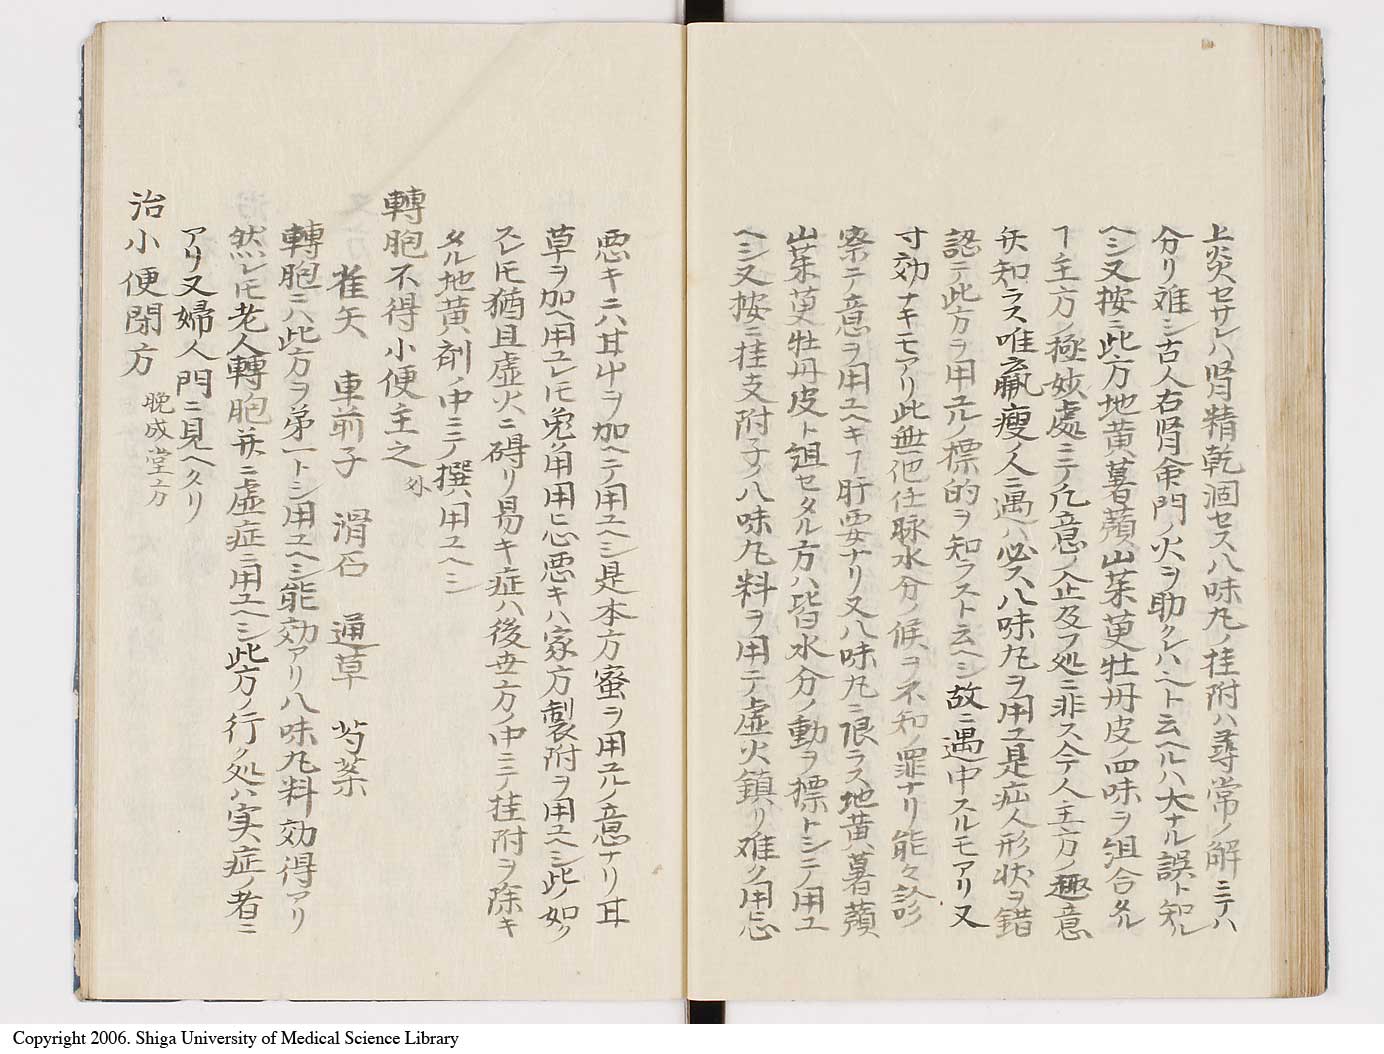 上炎セサレハ腎精乾涸セス八味丸ノ桂附ハ尋常ノ解ミテハ
分リ難シ古人右腎命門ノ火ヲ助クレハヘト云ヘルハ大ナル誤ト知ル
ヘシ又按ニ此方地黄薯蕷山茱萸牡丹皮ノ四味ヲ組合タル
ヿ主方ノ極妙處ミテ凡意ノ企及フ処ニ非ス今人主方ノ趣意
矣知ラス唯羸瘦ノ人ニ遇ハ必ス八味丸ヲ用ユ是疝人形状ヲ錯
認テ此方ヲ用ユルノ標的ヲ知ラスト云ヘシ故ニ遇中スルモアリ又
寸効ナキモアリ此無他任脉水分ノ候ヲ不知ノ罪ナリ能々診
察テ意ヲ用ユヘキヿ肝要ナリ又八味丸ニ限ラス地黄薯蕷
山茱萸牡丹皮ト組セタル方ハ皆水分ノ動ヲ標トシテ用ユ
ヘシ又按ニ桂支附子ノ八味丸料ヲ用テ虚火鎮リ难ク用忌
悪キニハ耳中ヲ加ヘテ用ユヘシ是本方蜜ヲ用ユルノ意ナリ耳
草ヲ加ヘ用ユレ𪜈兔角用忌悪キハ家方製附ヲ用ユヘシ此ノ如ク
スレ𪜈猶且虚火ニ碍リ易キ症ハ後世方ノ中ミテ桂附ヲ除キ
タル地黄剤ノ中ミテ撰ヘ用ユヘシ
轉胞不得小便主之 外
雀矢 車前子 滑石 通草 芍薬
轉胞ニハ此方ヲ第一トシ用ユヘシ能効アリ八味丸料効得アリ
然レ𪜈老人轉胞并ニ虚症ニ用ユヘシ此方ノ行ク処ハ実症ノ者ニ
アリ又婦人門ニ見ヘタリ
治小便閉方 晩成堂方
Copyright 2006. Shiga University of Medical Science Library